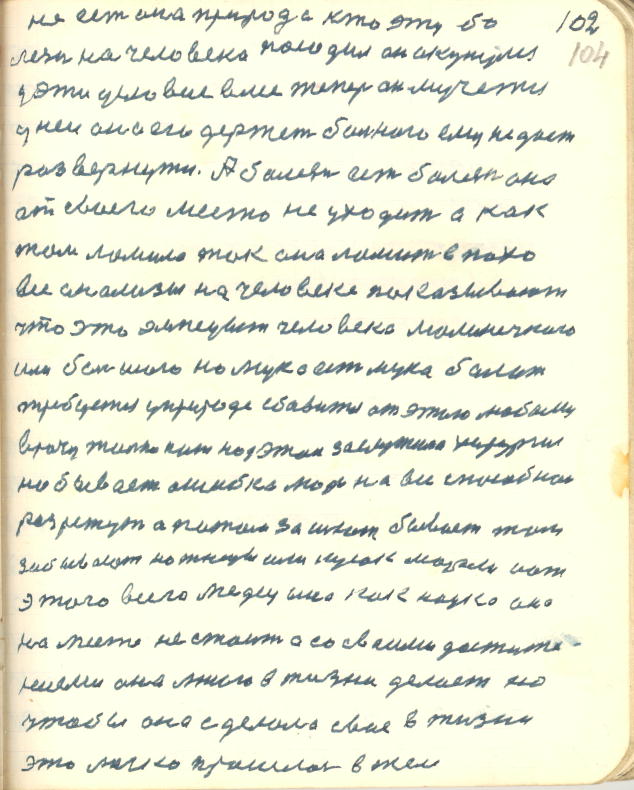 не ест она природа кто эту бо 102
лезн на человека посадил он окунулся 104
у эти условие влес тепер он мучется
у ней она его держет болного ему не дает
развернутся. А болезн ест болезн она
от своего место не уходит а как
там ломило так она ломит в
все анализы на человеке показывают
что это человека малинечкого
или болшого но мука ест мука болит
требуется природе сбавится от этого любому
врачу толко над этом заслужила херургия
но бывает ошибка люди на все способнаи
разрежут а потом зашют бывает там
забывают ножницы или кусок марли вот
этого всего медецина как наука она
на место не стоит а со своими достиже-
ниеми она много в жизни делает но
чтобы она сделала свое в жизни
это легко в тем